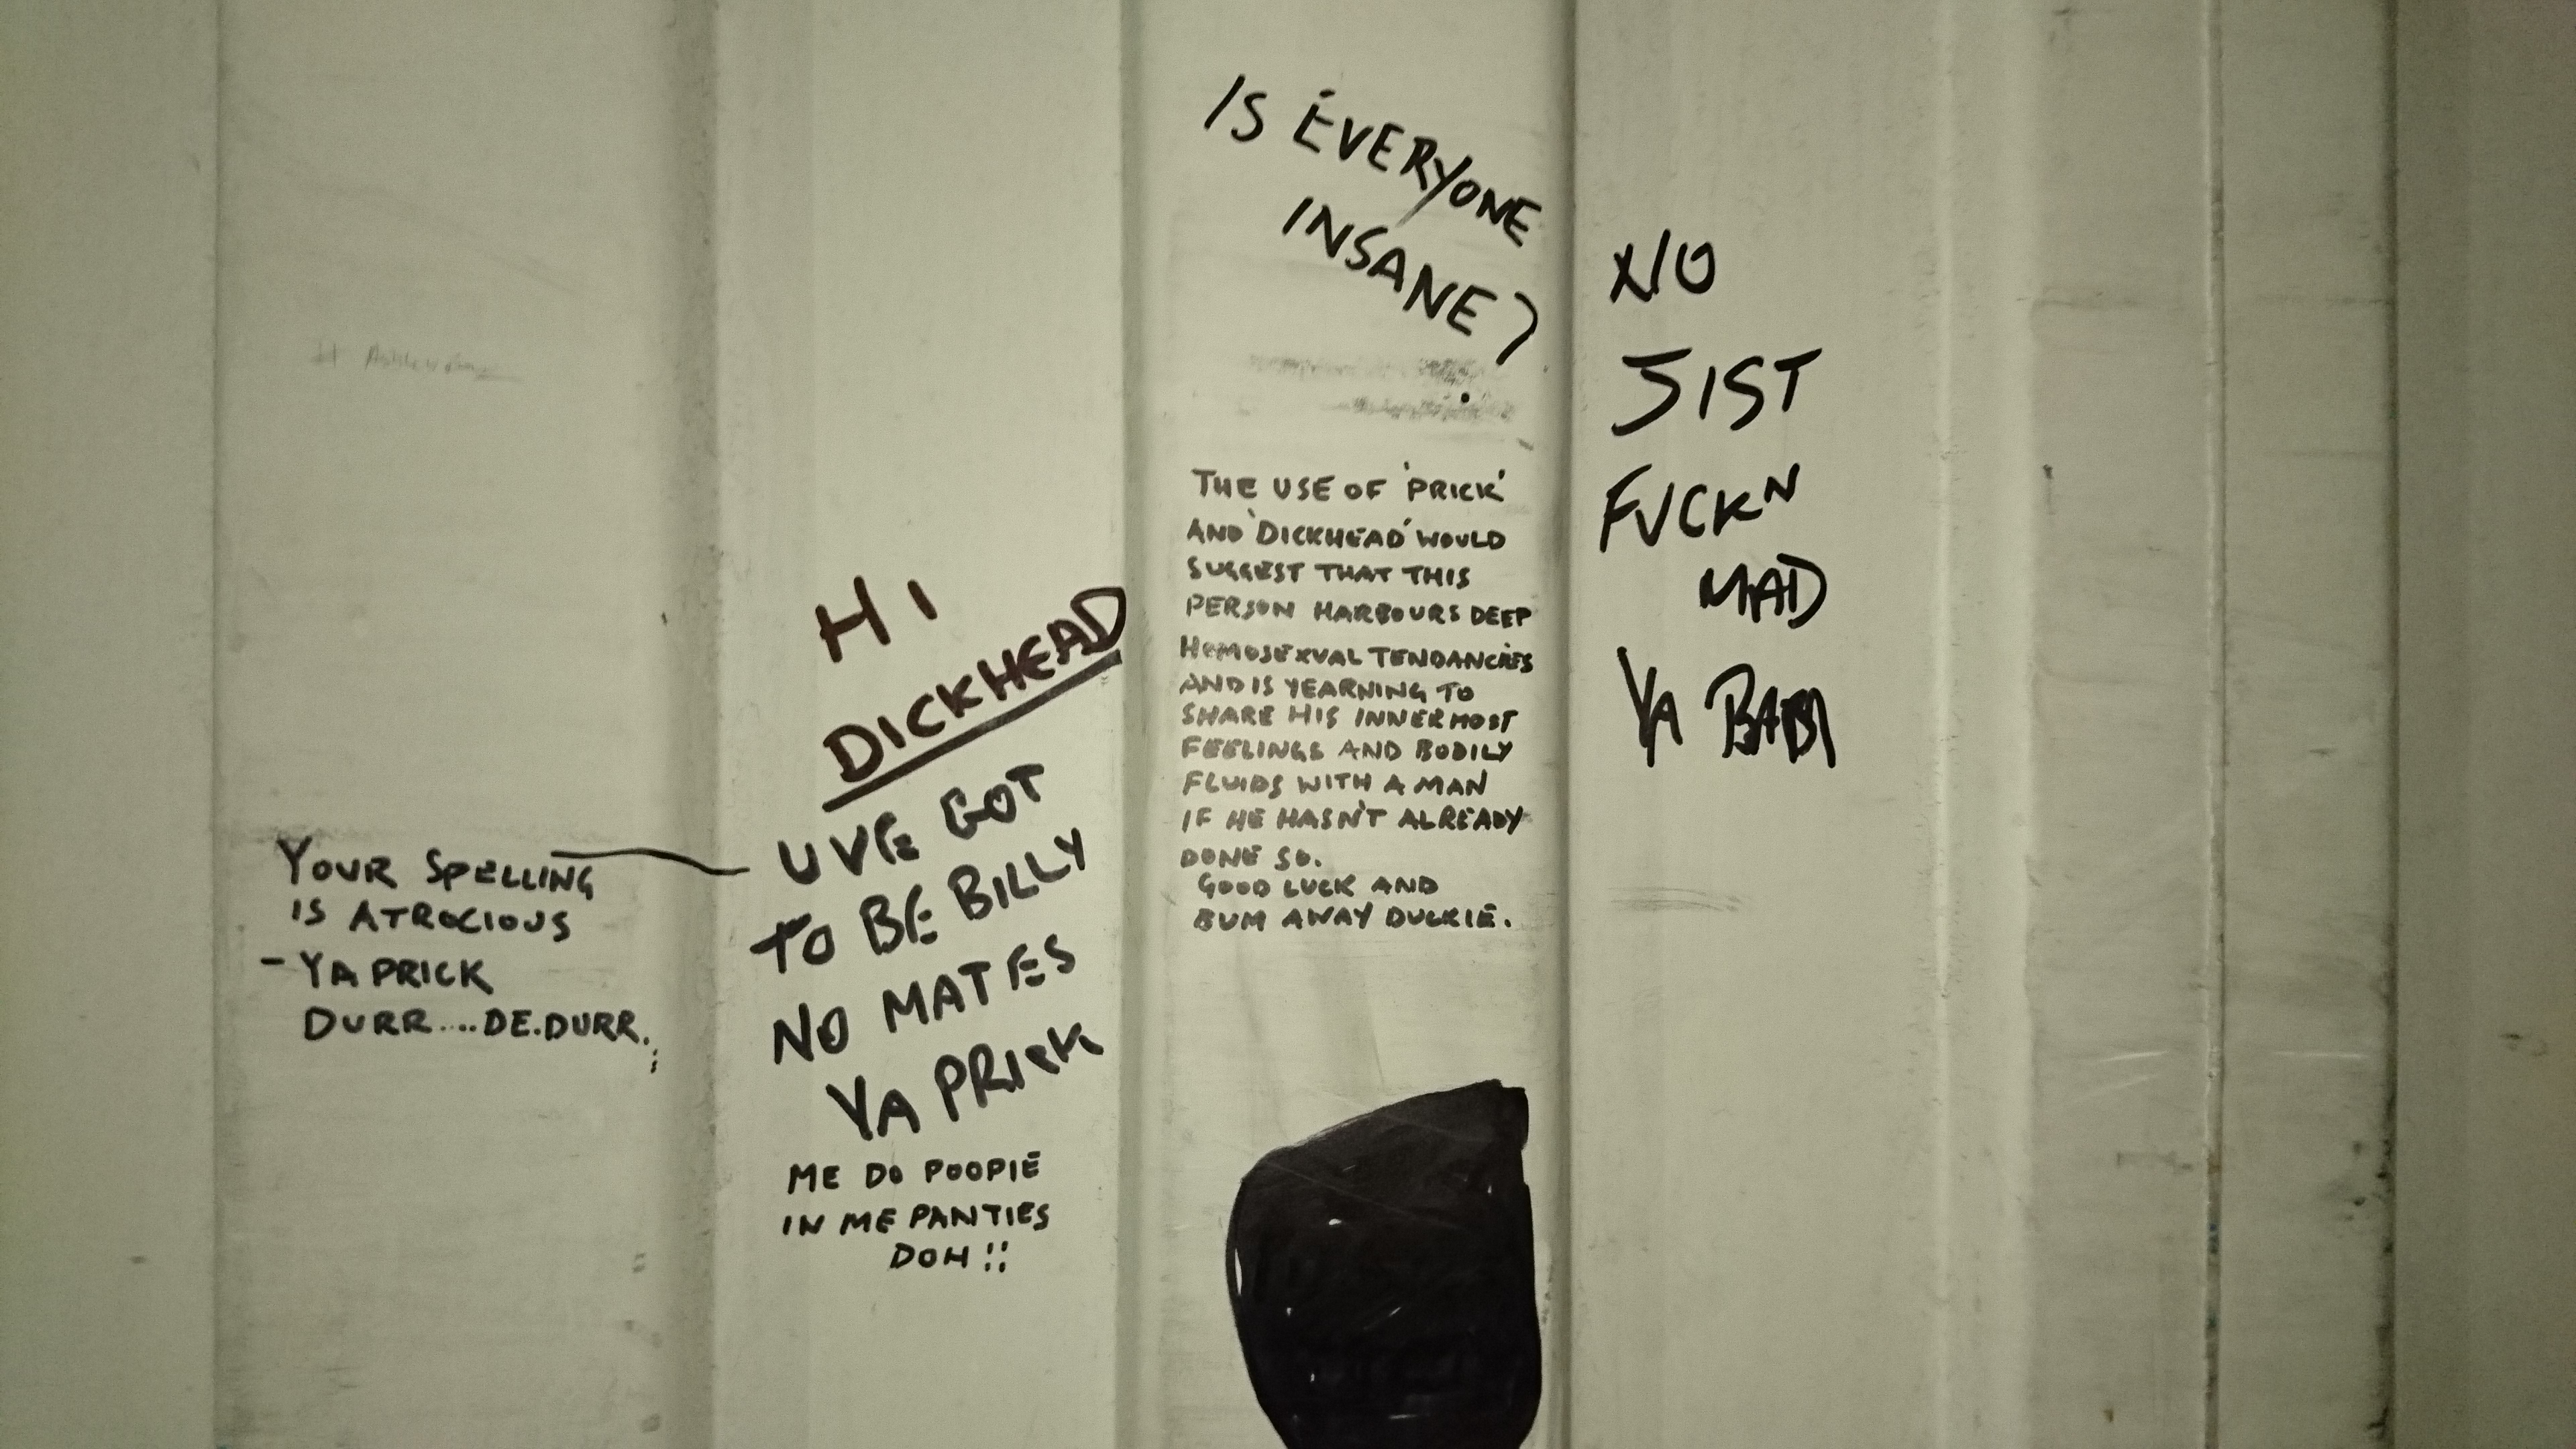 YOUR SPELLING
IS ATROCIOUS
- YA PRICK
DURR....DE.DURR.
HI
DICKHEAD
UVE GOT
TO BE BILLY
NO MATES
YA PRICK
ME DO POOPIE
IN ME PANTIES
DOH !!
IS EVERYONE
INSANE?
THE USE OF 'PRICK'
AND 'DICKHEAD' WOULD
SUGGEST THAT THIS
PERSON HARBOURS DEEP
HOMOSEXUAL TENDANCIES
AND IS YEARNING TO
SHARE HIS INNERMOST
FEELINGS AND BODILY
FLUIDS WITH A MAN
IF HE HASN'T ALREADY
DONE SO.
GOOD LUCK AND
BUM AWAY DUCKIE.
NO
JIST
FUCKN
MAD
YA